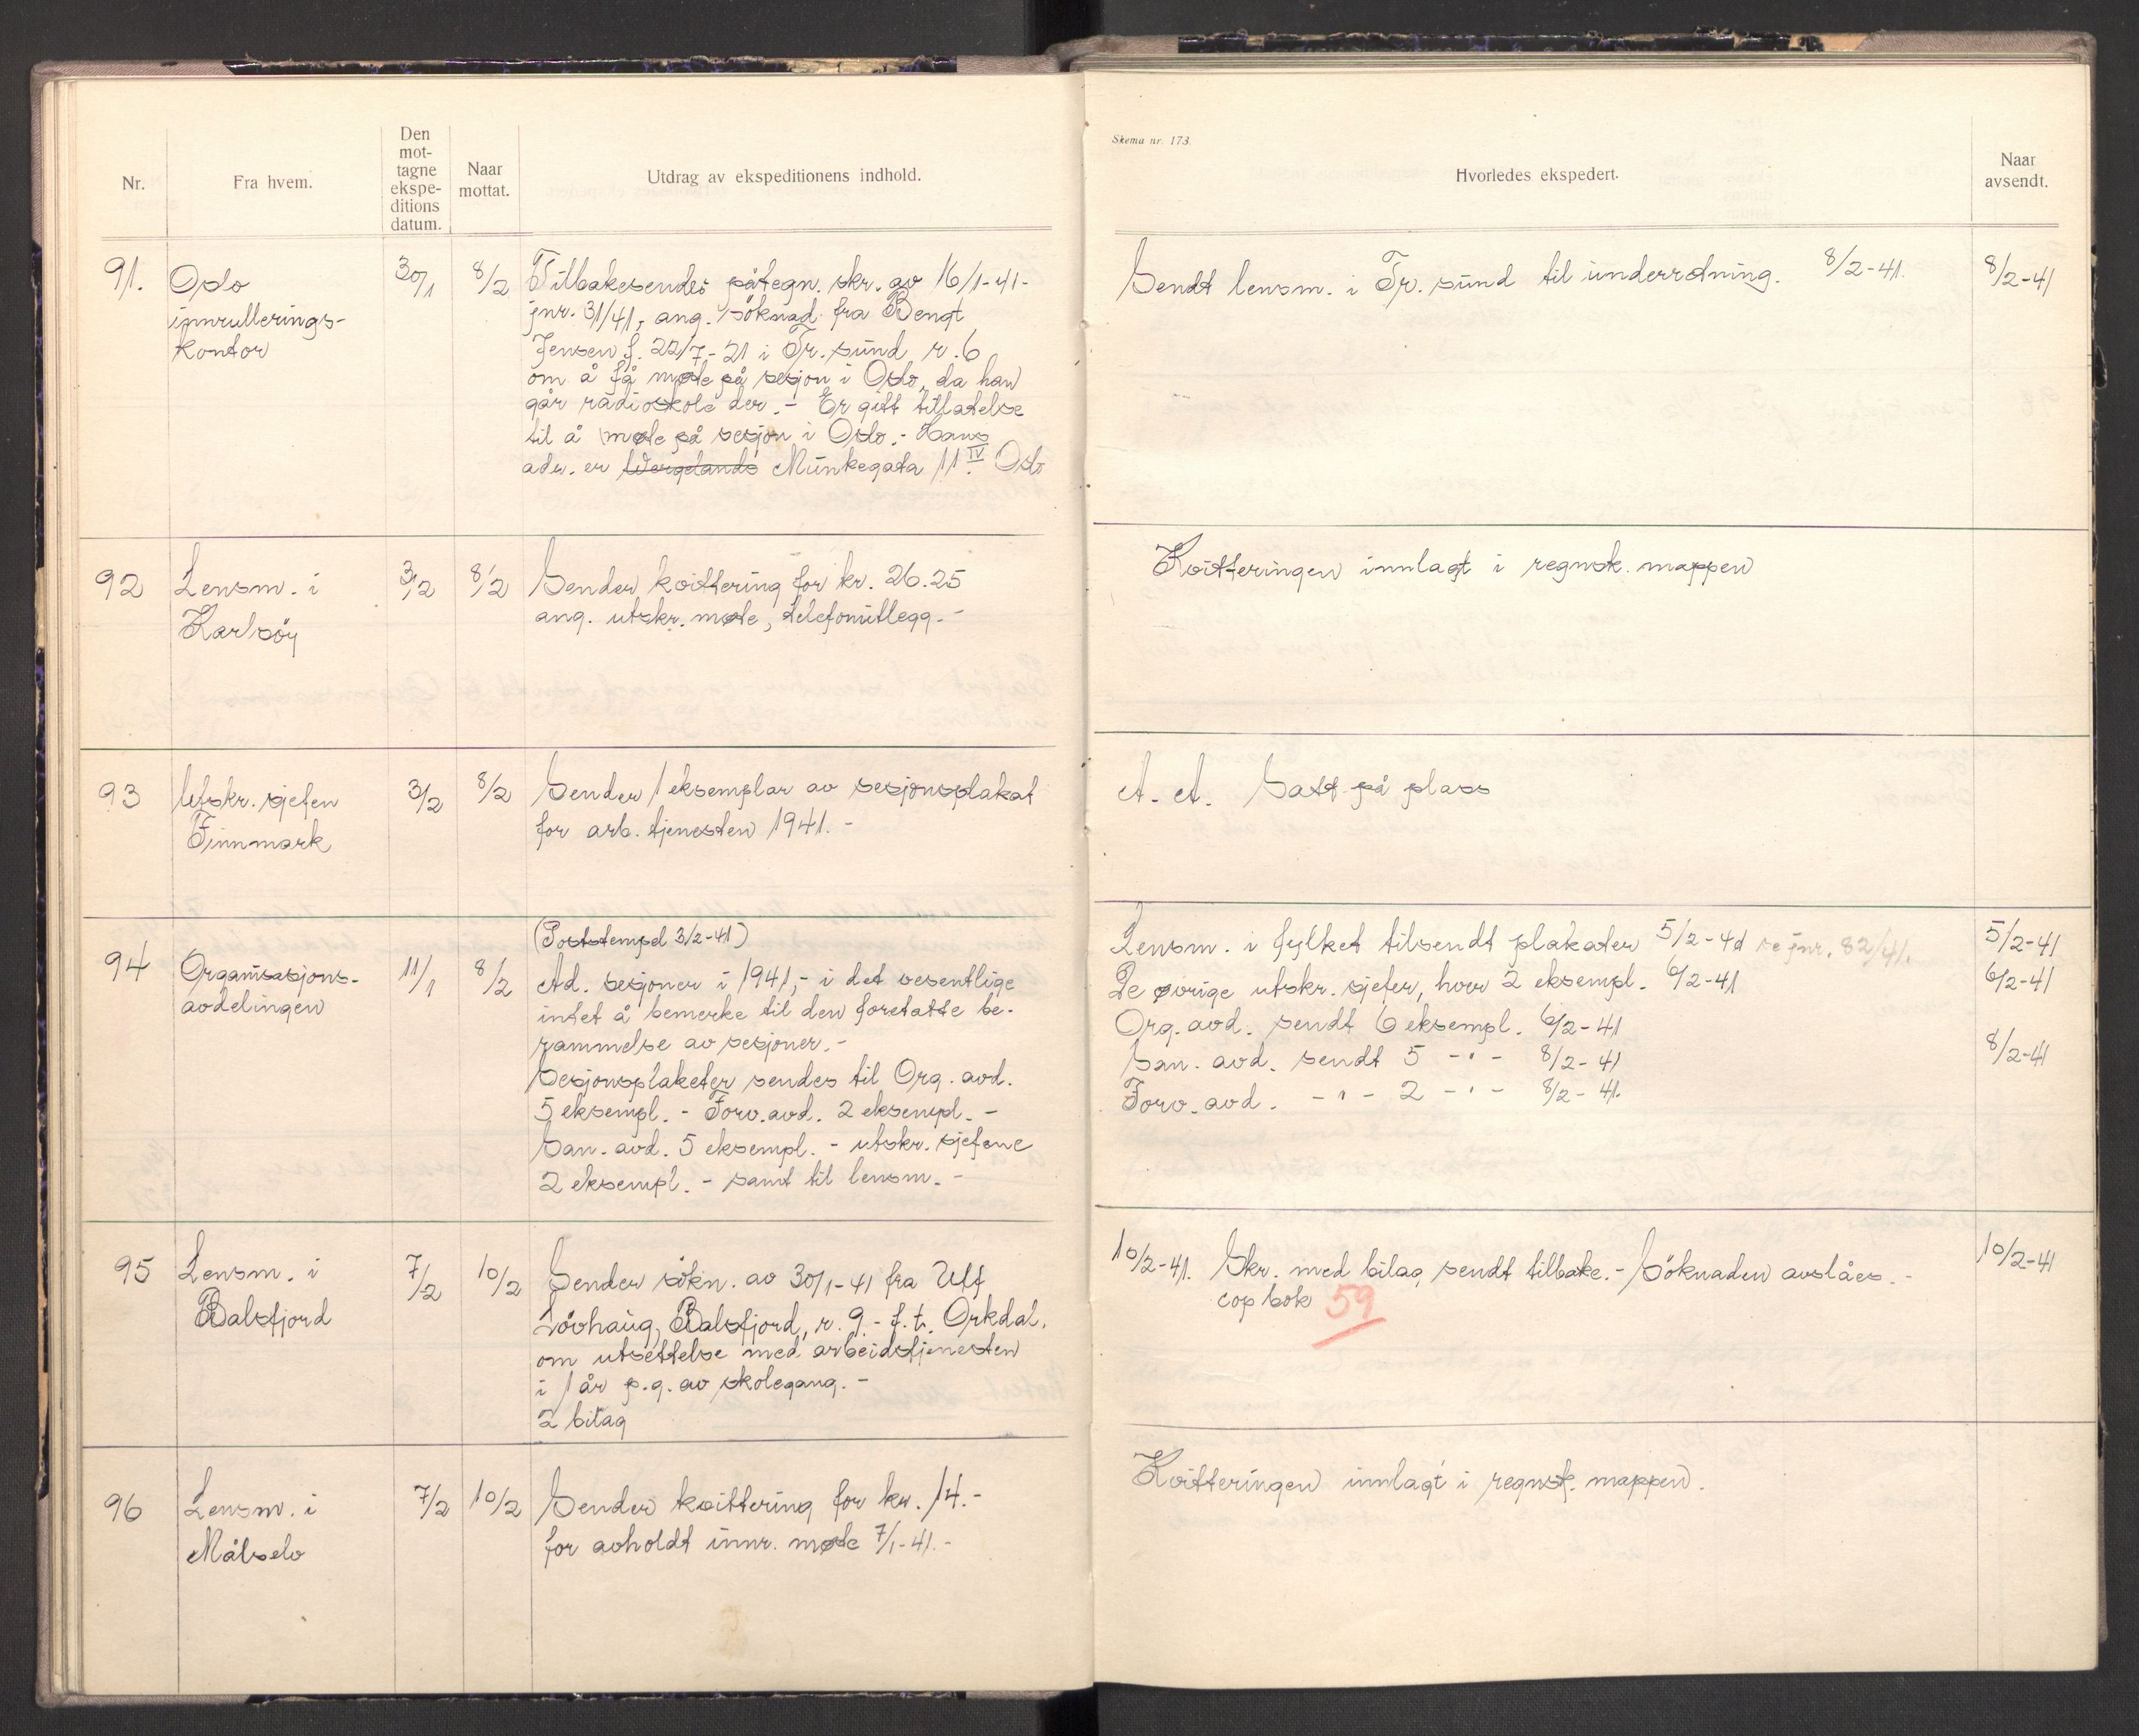 Nr.
Fra hvem.
Den
mot-
tagne
ekspe-
ditions
datum.
Naar
mottat.
Utdrag av ekspeditionens indhold.
91.
Oslo
innrullerings-
kontor
30/1
8/2
Tilbakesendes påtegn. skr. av 16/1-41-
jnr. 31/41, ang. söknad fra Bengt
Jensen f. 22/7-21 i Tr.sund r. 6
om å få møte på sesjon i Oslo, da han
går radioskole der. - Er gitt tillatelse
til å møte på sesjon i Oslo. - Hans
adr. er Wergelands Munkegata 11 IV Oslo
92
Lensm. i
Karlsöy
3/2
8/2
Sender kvittering for kr. 26.25
ang. utskr. møte, telefonutlegg. -
93
Utskr. sjefen
Finnmark
3/2
8/2
Sender 1 eksemplar av sesjonsplakat
for arb. tjenesten 1941. -
94
Organisasjons-
avdelingen
11/1
8/2
(Poststempel 3/2-41)
Ad. sesjoner i 1941, - i det vesentlige
intet å bemerke til den foretatte be-
rammelse av sesjoner. -
Sesjonsplakater sendes til Org. avd.
5 eksempl. - Forv. avd. 2 eksempl. -
San. avd. 5 eksempl. - utskr. sjefene
2 eksempl. - samt til lensm. -
95
Lensm. i
Balsfjord
7/2
10/2
Sender søkn. av 30/1-41 fra Ulf
Lövhaug, Balsfjord, r. 9 - f. t. Orkdal.
om utsettelse med arbeidstjenesten
i 1 år p.g. av skolegang. -
2 bilag
96
Lensm. i
Målselv
7/2
10/2
Sender kvittering for kr. 14.-
for avholdt innr. møte 7/1-41. -
Skema nr. 173.
Hvorledes ekspedert.
Naar
avsendt.
Sendt lensm. i Tr. sund til underretning. 8/2-41.
8/2-41
Kvitteringen innlagt i regnsk. mappen
A. A. Satt på plass
Lensm. i fylket tilsendt plakater 5/2-41 se jnr. 82/41.
5/2-41
De øvrige utskr. sjefer, hver 2 eksempl. 6/2-41
6/2-41
Org. avd. sendt 6 eksempl. 6/2-41
San. avd. sendt 5 -"- 8/2-41
8/2-41
Forv. avd. -"- 2 -"- 8/2-41.
10/2-41. Skr. med bilag sendt tilbake. - Söknaden avslåes. -
10/2-41
cop bok 59
Kvitteringen innlagt i regnsk. mappen.